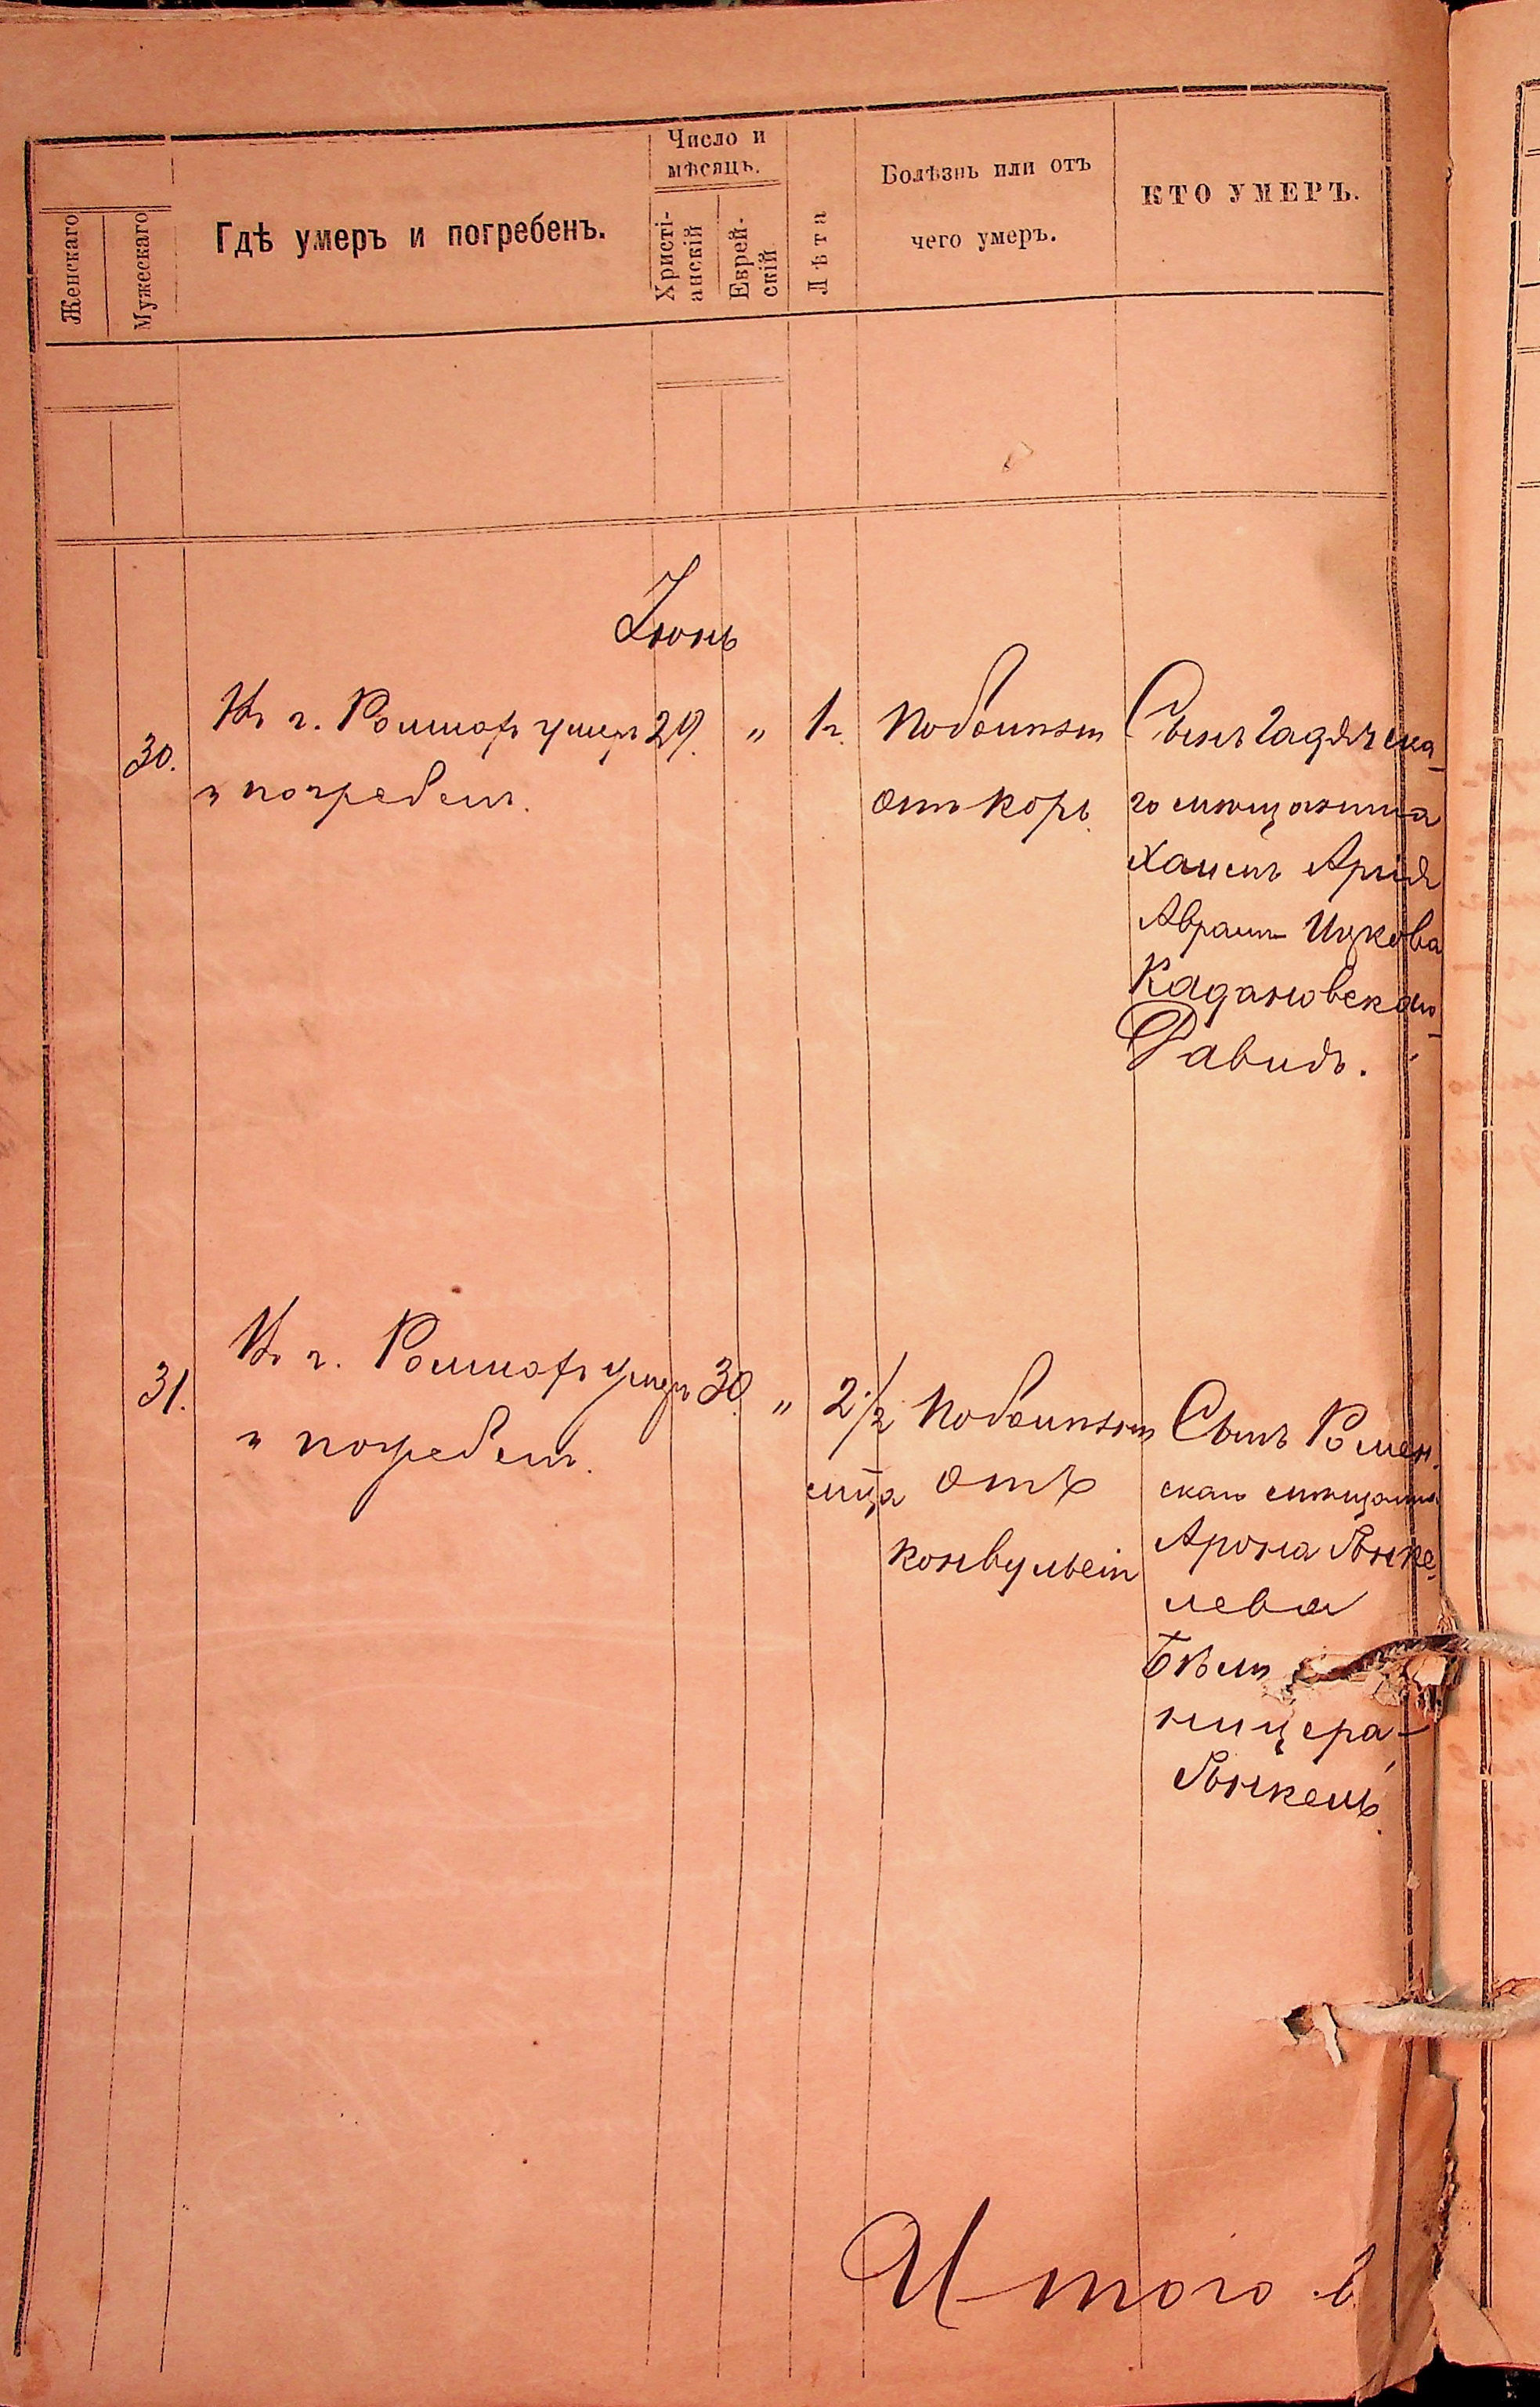 Женскаго
Мужескаго
Гдѣ умеръ и погребенъ.
Число и
мѣсяцъ.
Христі-
анскій
Еврей-
скій
Лѣта
Болѣзнь или отъ
чего умеръ.
КТО УМЕРЪ.
Іюнь
30.
Въ г. Ромнахъ умеръ
и погребенъ.
29.
"
1 г.
По болѣзни
отъ корь.
Сынъ Гадячска-
го мѣщанина
Хаимъ Арія
Аврамъ Ицкова
Кадановскаго-
Давидъ.
31.
Въ г. Ромнахъ умеръ
и погребенъ.
30.
"
2 1/2
мѣца
По болѣзни
отъ
конвульсій
Сынъ Ромен-
скаго мѣщанина
Арона Янке-
лева
Бѣли
ницера-
Янкель.
Итого в